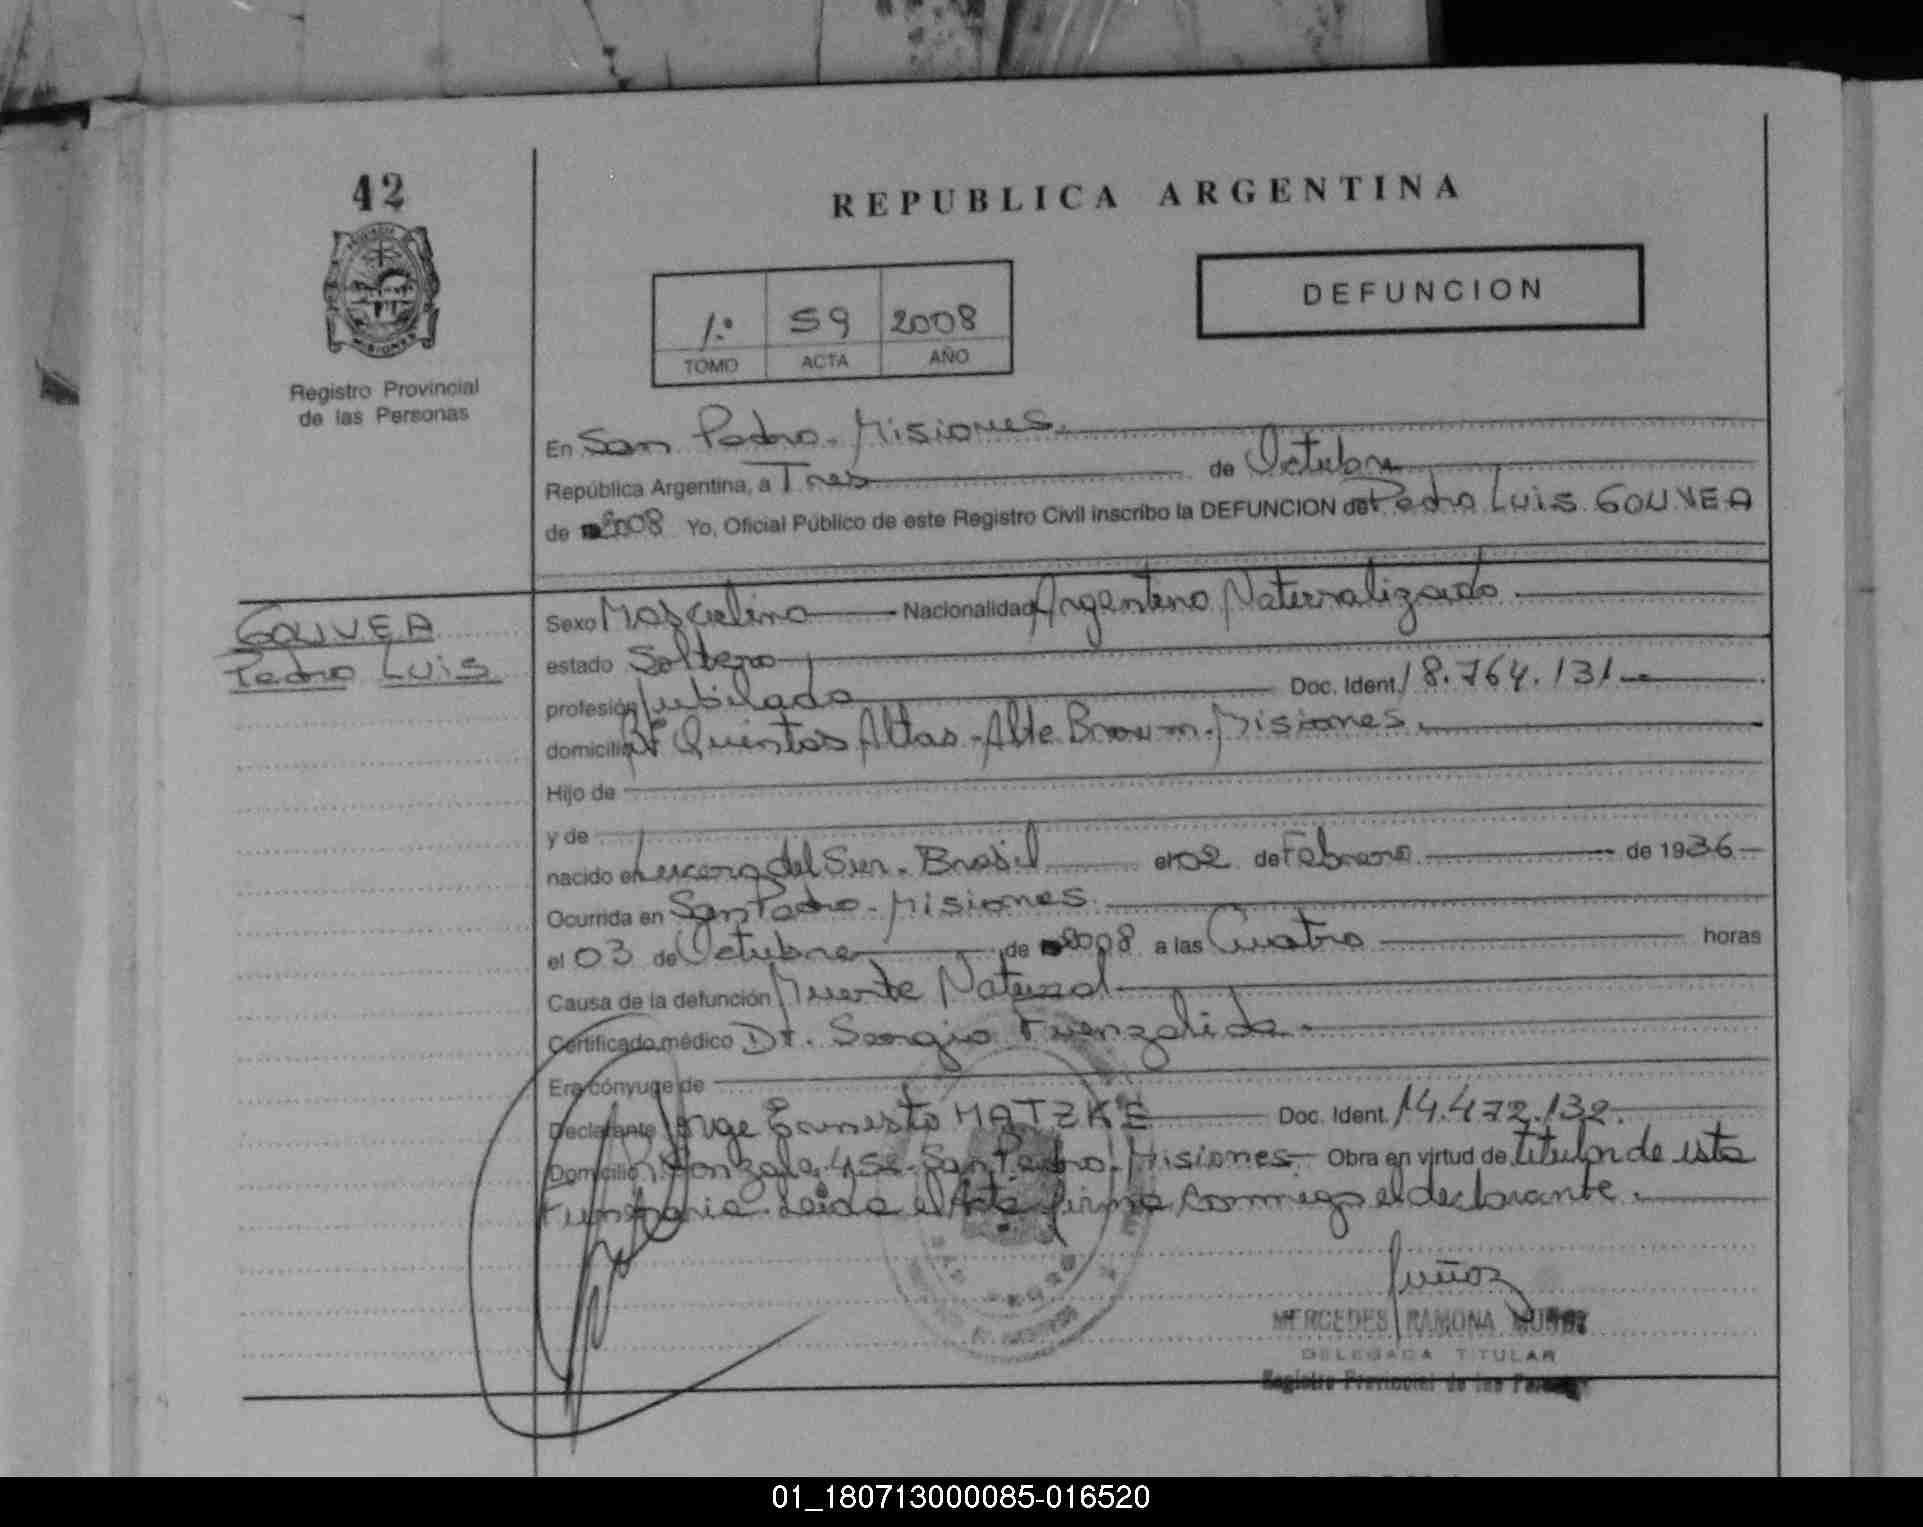 42
REPUBLICA ARGENTINA
DEFUNCION
1.º 59 2008
TOMO ACTA AÑO
Registro Provincial
de las Personas
En San Pedro. Misiones.
República Argentina, a Tres de Octubre
de 2008 Yo, Oficial Público de este Registro Civil inscribo la DEFUNCION de Pedro Luis GOUVEA
GOUVEA
Pedro Luis
Sexo Masculino Nacionalidad Argentino Naturalizado
estado Soltero
profesión Jubilado Doc. Ident. 18.764.131
domicilio Bº Quintas Altas - Alte Brown. Misiones.
Hijo de
y de
nacido en del Sur. Brasil el 02 de Febrero de 1936
Ocurrida en San Pedro - Misiones.
el 03 de Octubre de 2008 a las Cuatro horas
Causa de la defunción Muerte Natural
Certificado médico Dr. Sergio Fuenzalida
Era cónyuge de
Declarante Jorge Ernesto MATZKE Doc. Ident. 14.472.132.
Domicilio San Pedro. Misiones Obra en virtud de titular de esta
Funeraria. Leída el Acta firma conmigo el declarante.
Muñoz
MERCEDES RAMONA MUÑOZ
DELEGADA TITULAR
Registro Provincial de las Personas
01_180713000085-016520